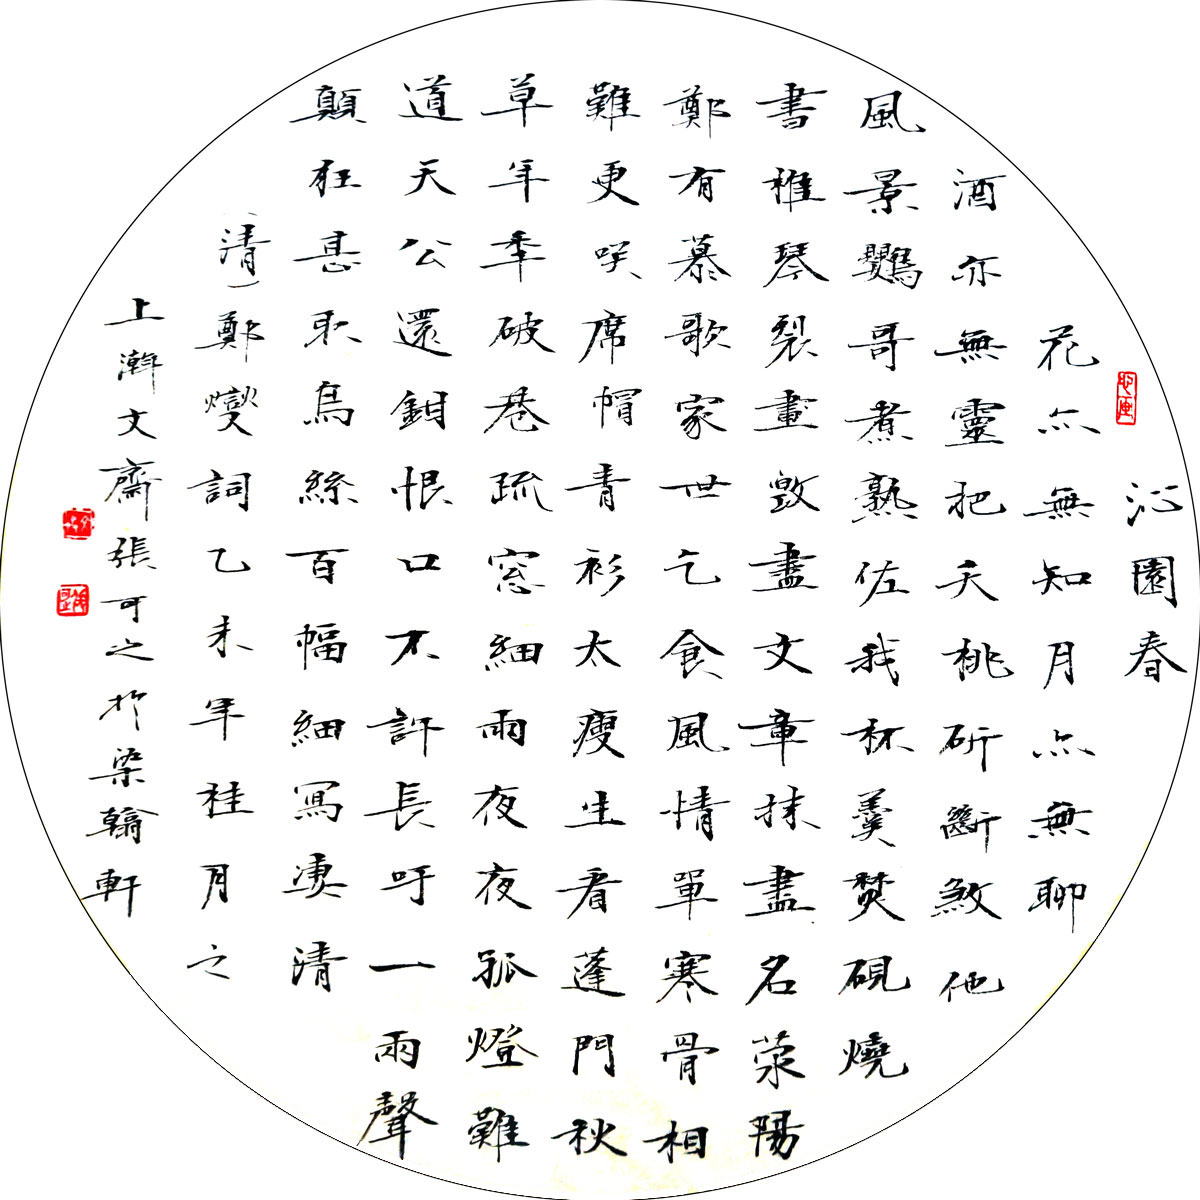 沁園春
花亦無知月亦無聊
酒亦無靈把夭桃斫斷煞他
風景鸚哥煮熟佐我杯羹焚硯燒
書椎琴裂畫毀盡文章抹盡名滎陽
鄭有慕歌家世乞食風情單寒骨相
難更咲席帽青衫太瘦生看蓬門秋
草年秊破巷疏窓細雨夜夜孤燈難
道天公還鉗恨口不許長吁一兩聲
顛狂甚取烏絲百幅細寫淒清
（清）鄭燮詞乙未年桂月之
上澣文齋張可之於染翰軒